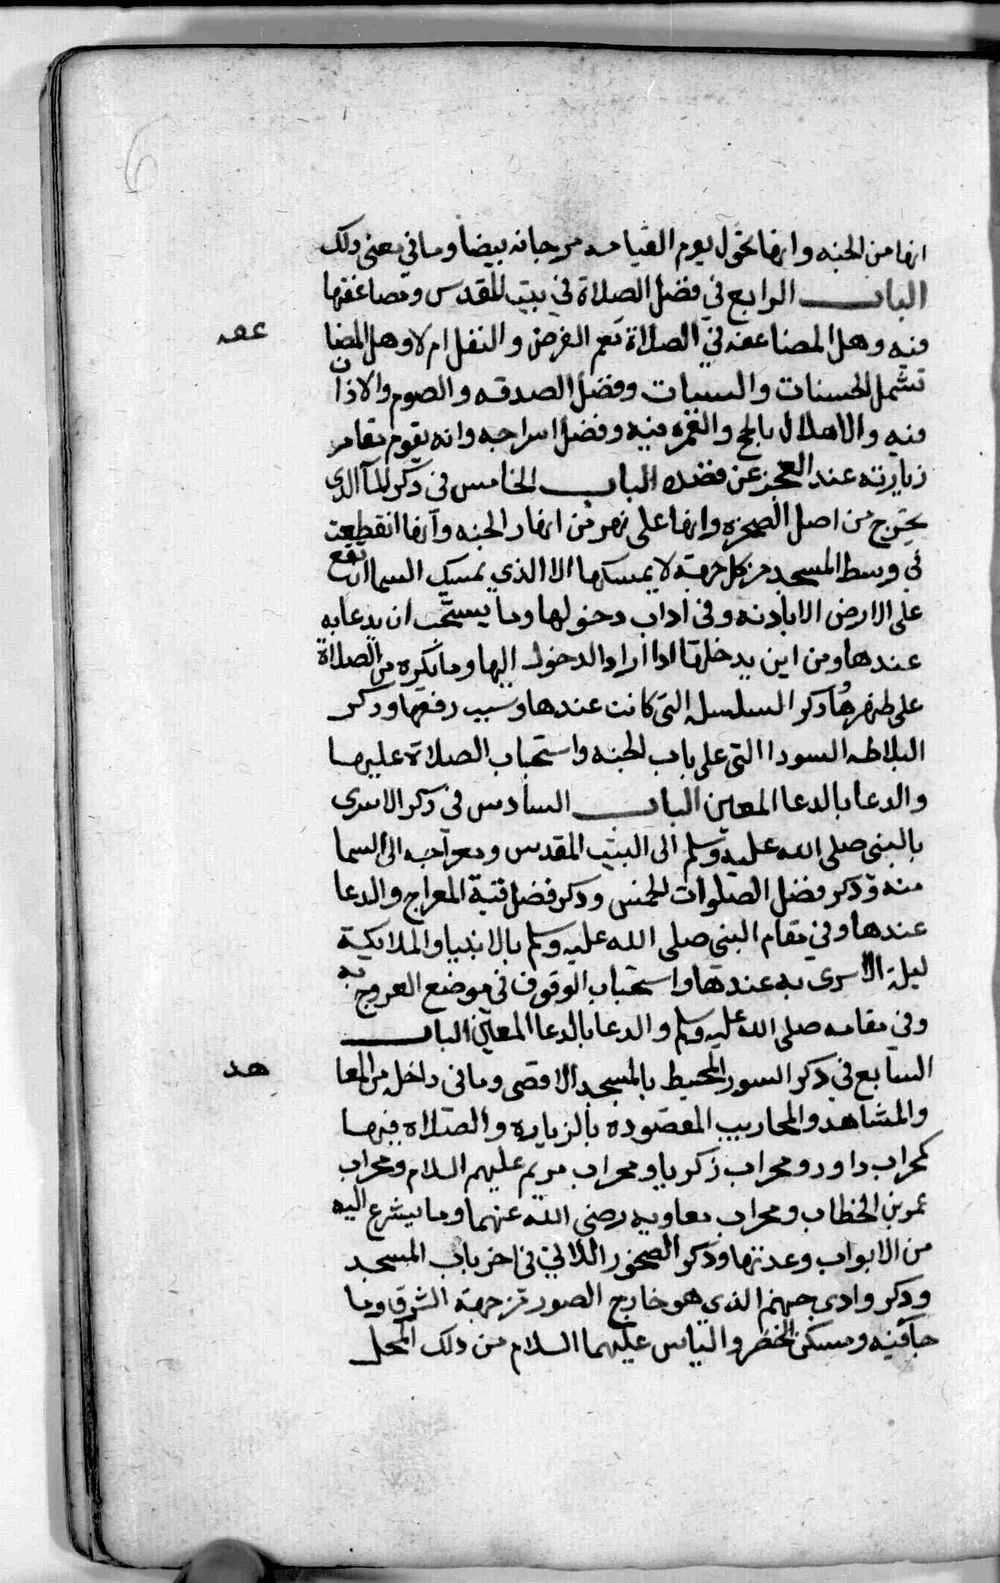 6
انها من الجنه وانها تحول يوم القيامه مرجانه بيضا وما في معنى ذلك
الباب الرابع في فضل الصلاة في بيت المقدس ومضاعفتها
فيه وهل المضاعفه في الصلاة تعم الفرض والنفل ام لا وهل المضا
عفه
تشمل الحسنات والسيات وفضل الصدقه والصوم والاذان
فيه والاهلال بالحج والعمره فيه وفضل اسراجه وانه يقوم مقام
زيارته عند العجز عن قصده الباب الخامس في ذكر الماآ الذي
يخرج من اصل الصخره وانها على نهر من انهار الجنه وانها انقطعت
في وسط المسجد من كل جهة لا يمسكها الا الذي يمسك السما ان تقع
على الارض الا باذنه وفي اداب دخولها وما يستحب ان يدعا به
عندها ومن اين يدخلها اذا اراد الدخول اليها وما يكره من الصلاة
على ظهرها وذكر السلسله التي كانت عندها وسبب رفعها وذكر
البلاطه السودا التي على باب الجنه واستحباب الصلاة عليها
والدعا بالدعا المعين الباب السادس في ذكر الاسرى
بالنبي صلى الله عليه وسلم الى البيت المقدس ومعراجه الى السما
منه وذكر فضل الصلوات الخمس وذكر فضل قبة المعراج والدعا
عندها وفي مقام النبي صلى الله عليه وسلم بالانبيا والملايكة
ليلة الاسرى به عندها واستحباب الوقوف في موضع العروج به
وفي مقامه صلى الله عليه وسلم والدعا بالدعا المعين الباب
السابع في ذكر السور المحيط بالمسجد الاقصى وما في داخله من المعا
هد
والمشاهد والمحاريب المقصوده بالزياره والصلاة فيها
كمحراب داود ومحراب زكريا ومحراب مريم عليهم السلام ومحراب
عمر بن الخطاب ومحراب معاويه رضي الله عنهما وما يشرع اليه
من الابواب وعدتها وذكر الصخور اللاتي في اخر باب المسجد
وذكر وادي جهنم الذي هو خارج الصور من جهة الشرق وما
جآ فيه ومسكن الخضر والياس عليهما السلام من ذلك المحل